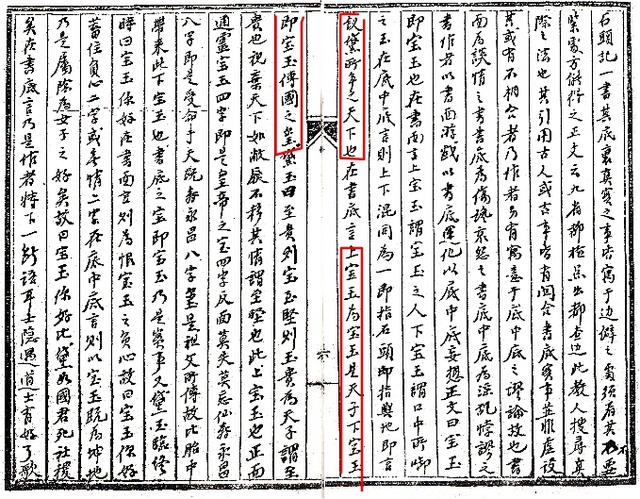 石頭記一書其底裏真實之事皆寓于边僻之處須看其不要
緊處方能得之正文云九省都檢点出都查边此教人搜尋真
除之法也其引用古人或古事皆有闗合書底實事並非虚设
其或有不相合者乃作者另有寓意于底中底之谬論故也書
面為談情之書書底為傷悼哀怨之書底中底為淫亂悖謬之
書作者以書面游戲以書底運化以底中底妄想正文曰宝玉
即宝玉也在書面言上宝玉謂宝玉之人下宝玉謂口中所啣
之玉在底中底言則上下混同為一即指石頭即指輿地即言
釵黛所争之天下也在書底言上宝玉為宝玉是天子下宝玉
六
即宝玉傳國之璽黛玉曰至贵則宝至堅則玉貴為天子謂至
貴也視棄天下如敝屣不移其情謂至堅也此上宝玉也正面
通靈宝玉四字即是皇帝之宝四字反面莫失莫忘仙寿永昌
八字即是受命于天既寿永昌八字璽是祖父所傳故比胎中
帶来此下宝玉也書底之宝即宝玉乃是實事又黛玉臨終
時曰宝玉你好在書面言则為恨宝玉之负心故曰宝玉你好
蓄住负心二字或辜情二字在底中底言則以宝玉既為坤地
乃是屬陰為女子之好矣故曰宝玉你好比黛如國君死社稷
矣在書底言乃是作者特下一斷語耳士隐遇道士有好了歌